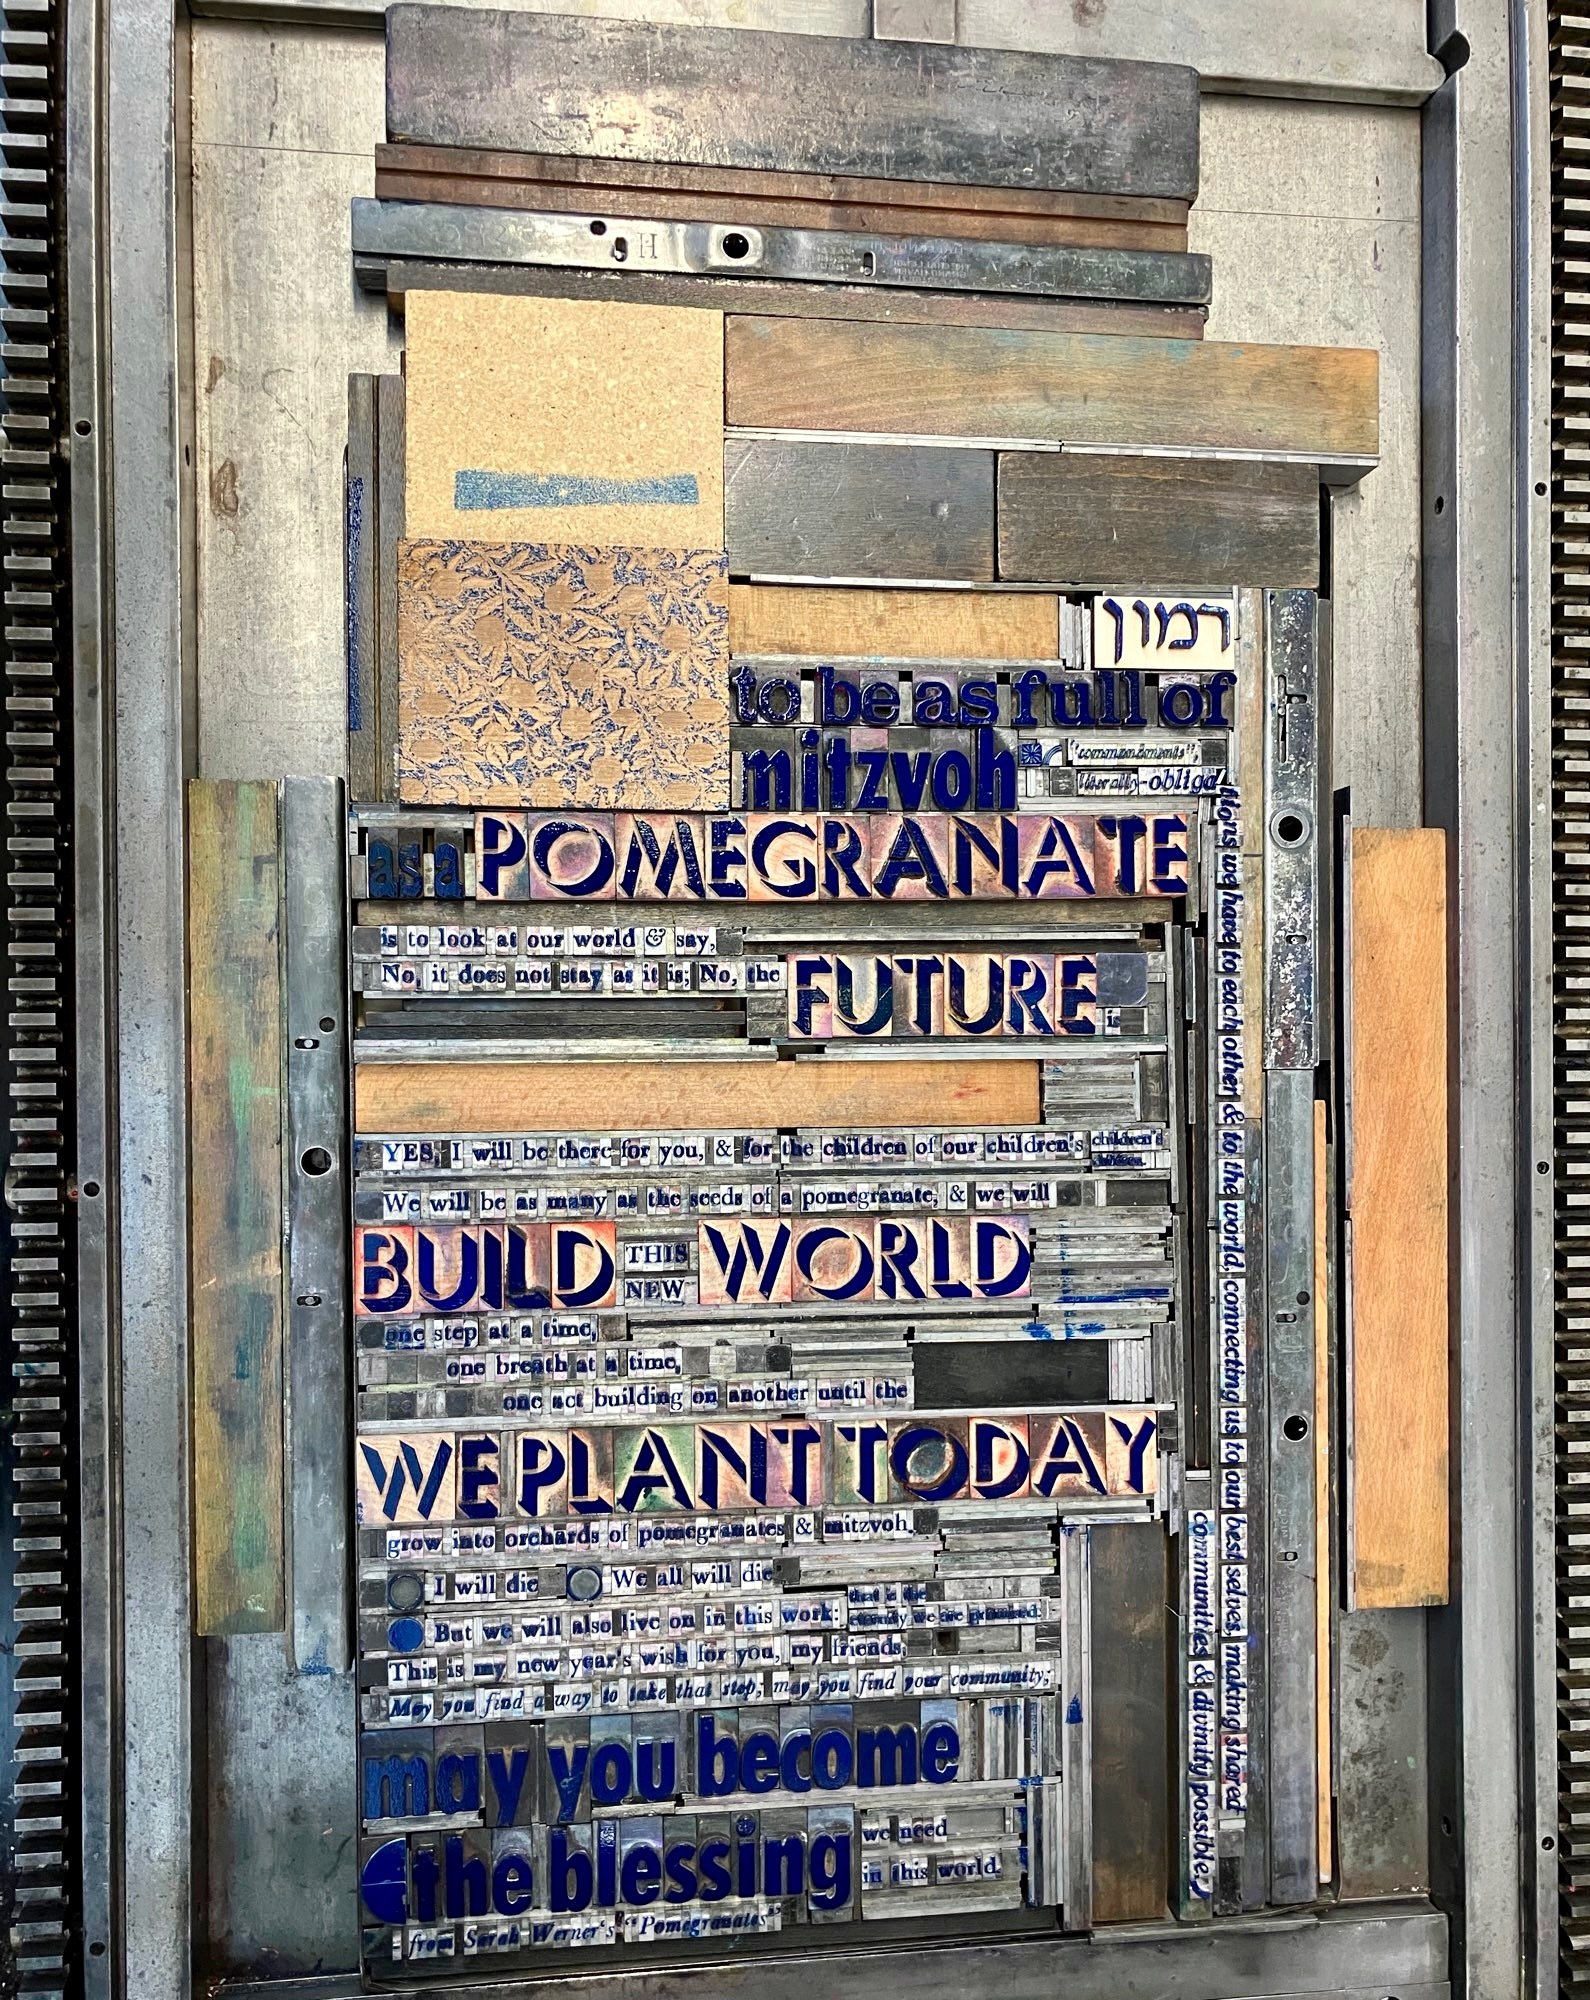 רמון
to be as full of
mitzvoh
("commandments",
literally-obliga-
tions we have to each other & to the world, connecting us to our best selves, making shared
communities & divinity possible.)
as a POMEGRANATE
is to look at our world & say,
No, it does not stay as it is; No, the
FUTURE is
YES, I will be there for you, & for the children of our children's
children's
We will be as many as the seeds of a pomegranate, & we will
BUILD THIS NEW WORLD
one step at a time,
one breath at a time,
one act building on another until the
WE PLANT TODAY
grow into orchards of pomegranates & mitzvoh.
I will die We all will die
But we will also live on in this work: that is the
eternity we are promised.
This is my new year's wish for you, my friends;
May you find a way to take that step; may you find your community;
may you become
the blessing
we need
in this world.
from Sarah Werner's "Pomegranates"